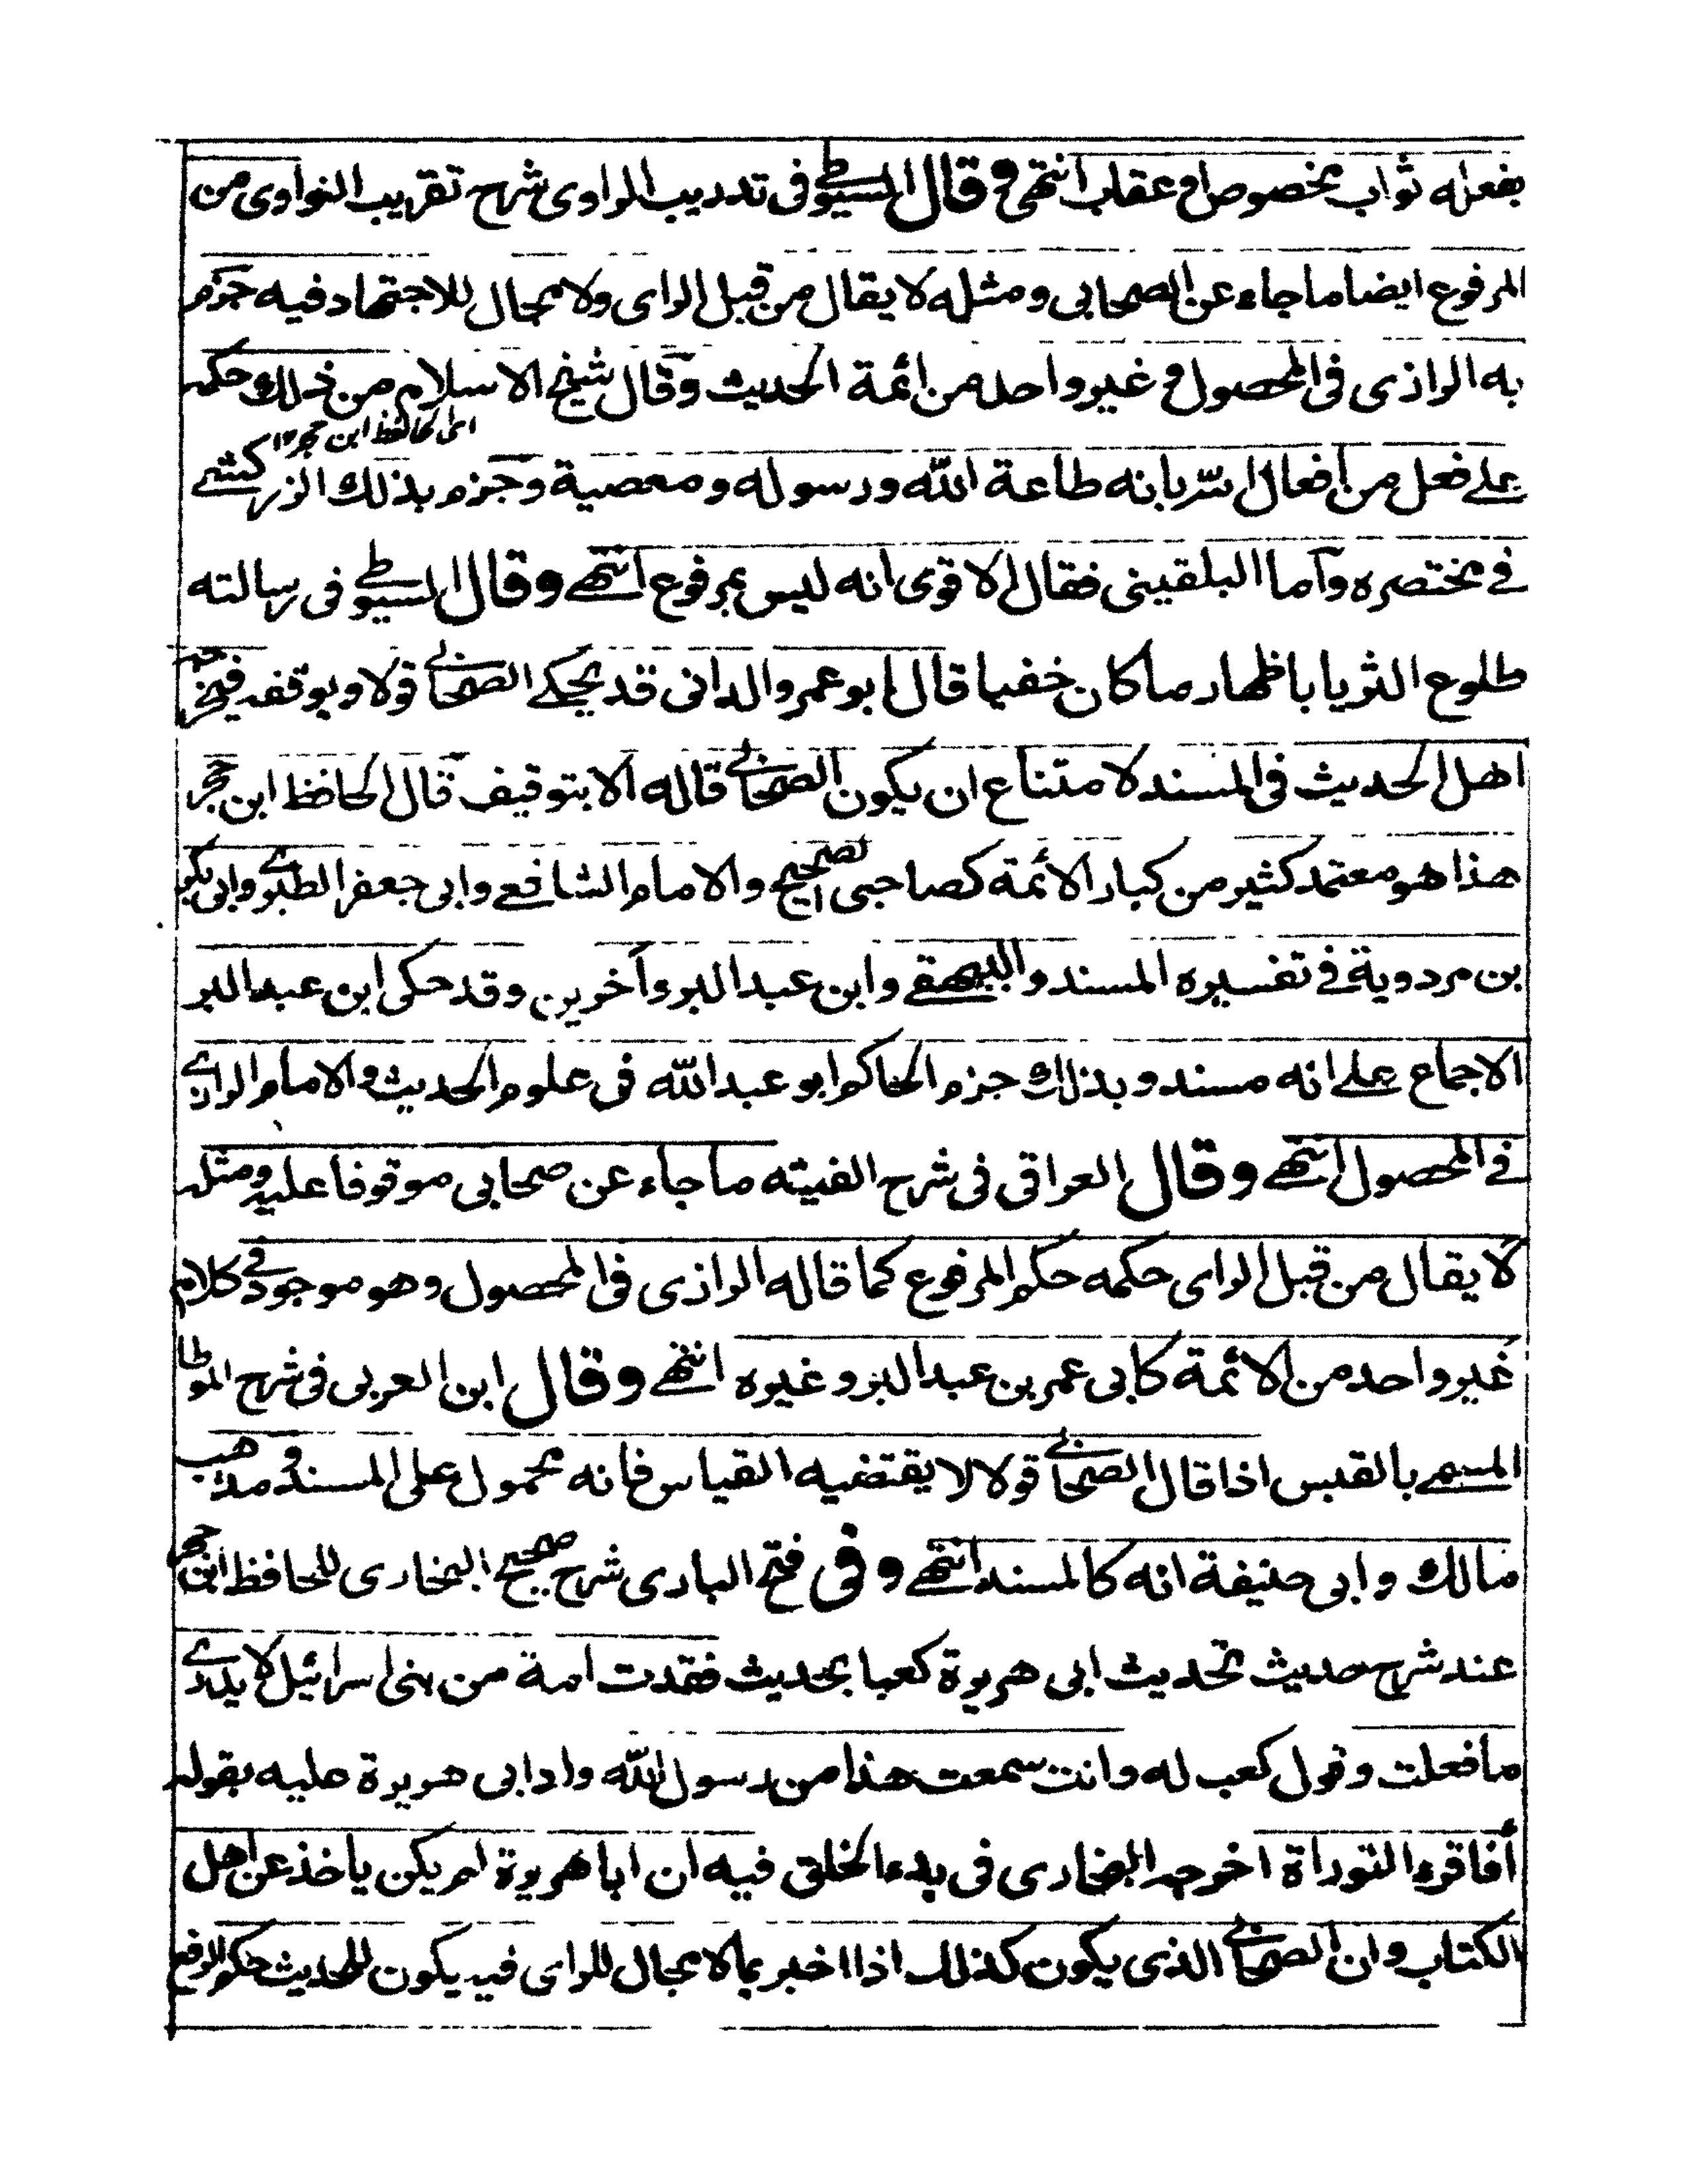 بفعله ثواب مخصوص او عقاب انتهى وقال السيوطي فى تدريب الراوى شرح تقريب النواوى من
المرفوع ايضا ما جاء عن الصحابى ومثله لا يقال من قبل الراى ولا مجال للاجتهاد فيه جزم
به الرازى فى المحصول وغير واحد من ائمة الحديث وقال شيخ الاسلام من ذلك حكمه
اى الحافظ ابن حجر
على فعل من أفعال البر بانه طاعة الله ورسوله ومعصية وجزم بذلك الزركشى
فى مختصره وأما البلقينى فقال الاقوى انه ليس بمرفوع انتهى وقال السيوطي فى رسالته
طلوع الثريا باظهار ما كان خفيا قال ابو عمرو الدانى قد يحكى الصحابى قولا ويوقفه فيخرجه
اهل الحديث فى المسند لامتناع ان يكون الصحابى قاله الا بتوقيف قال الحافظ ابن حجر
هذا هو معتمد كثير من كبار الأئمة كصاحبى الصحيح والامام الشافعى وابى جعفر الطبرى وابى بكر
بن مردوية فى تفسيره المسند والبيهقى وابن عبد البر وآخرين وقد حكى ابن عبد البر
الاجماع على انه مسند وبذلك جزم الحاكم ابو عبد الله فى علوم الحديث والامام الرازى
فى المحصول انتهى وقال العراقى فى شرح الفيته ما جاء عن صحابى موقوفا عليه ومثله
لا يقال من قبل الراى حكمه حكم المرفوع كما قاله الرازى فى المحصول وهو موجود فى كلام
غير واحد من الائمة كابى عمر بن عبد البر وغيره انتهى وقال ابن العربى فى شرح الموطا
المسمى بالقبس اذا قال الصحابى قولا لا يقتضيه القياس فانه محمول على المسند ومذهب
مالك وابى حنيفة انه كالمسند انتهى وفى فتح البارى شرح صحيح البخارى للحافظ ابن حجر
عند شرح حديث تحديث ابى هريرة كعبا بحديث فقدت امة من بنى اسرائيل لا يدرى
ما فعلت وقول كعب له وانت سمعت هذا من رسول الله وادابى هريرة عليه بقوله
أفاقرء التوراة اخرجه البخارى فى بدء الخلق فيه ان ابا هريرة لم يكن ياخذ عن اهل
الكتاب وان الصحابى الذى يكون كذلك اذا اخبر بما لا مجال للراى فيه يكون للحديث حكم الرفع